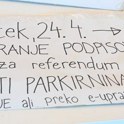 tek, 24.4. →
RANJE PODPISO
za referendum
TI PARKIRNINA
UE ali preko e-upra